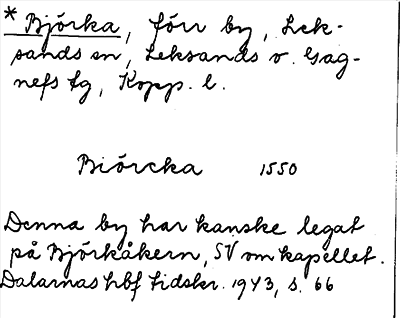 * Björka, förr by, Lek-
sands sn, Leksands o. Gag-
nefs tg, Kopp. l.
Biörcka 1550
Denna by har kanske legat
på Björkåkern, SV om kapellet.
Dalarnas hbf tidskr. 1943, s. 66